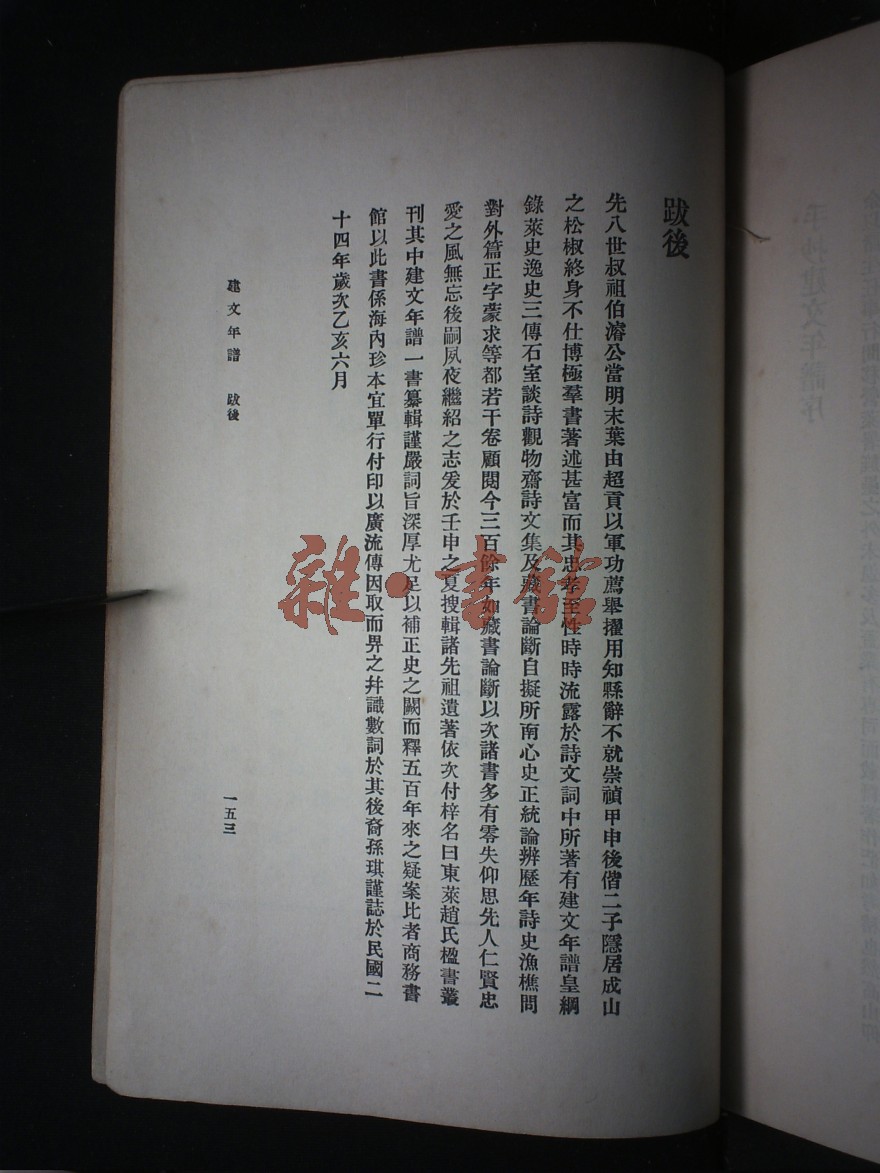 跋後
先八世叔祖伯濬公當明末葉由超貢以軍功薦舉擢用知縣辭不就崇禎甲申後偕二子隱居成山
之松椒終身不仕博極羣書著述甚富而其忠孝至性時時流露於詩文詞中所著有建文年譜皇綱
錄萊史逸史三傳石室談詩觀物齋詩文集及藏書論斷自擬所南心史正統論辨歷年詩史漁樵問
對外篇正字蒙求等都若干卷顧閱今三百餘年如藏書論斷以次諸書多有零失仰思先人仁賢忠
愛之風無忘後嗣夙夜繼紹之志爰於壬申之夏搜輯諸先祖遺著依次付梓名曰東萊趙氏楹書叢
刊其中建文年譜一書纂輯謹嚴詞旨深厚尤足以補正史之闕而釋五百年來之疑案比者商務書
館以此書係海內珍本宜單行付印以廣流傳因取而畀之幷識數詞於其後裔孫琪謹誌於民國二
十四年歲次乙亥六月
建文年譜 跋後
一五三
雜·書館